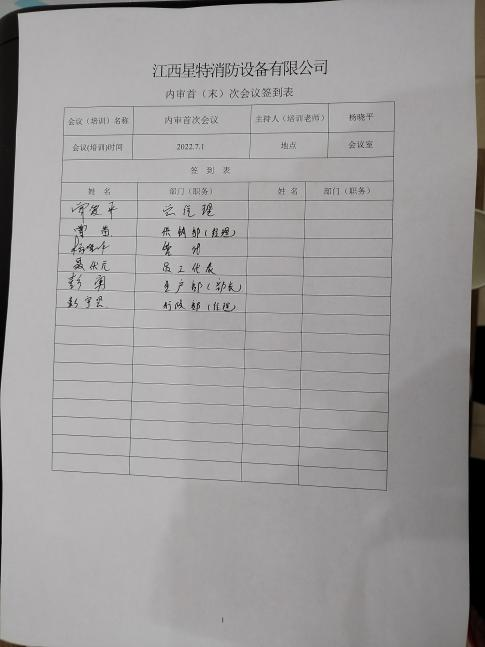 江西星特消防设备有限公司
内审首（末）次会议签到表
会议（培训）名称 内审首次会议 主持人（培训老师） 杨晓平
会议(培训)时间 2022.7.1 地点 会议室
签 到 表
姓 名 部门（职务） 姓 名 部门（职务）
总经理
供销部（经理）
杨晓平 管代
聂状元 员工代表
彭勇 生产部（部长）
行政部（经理）
1